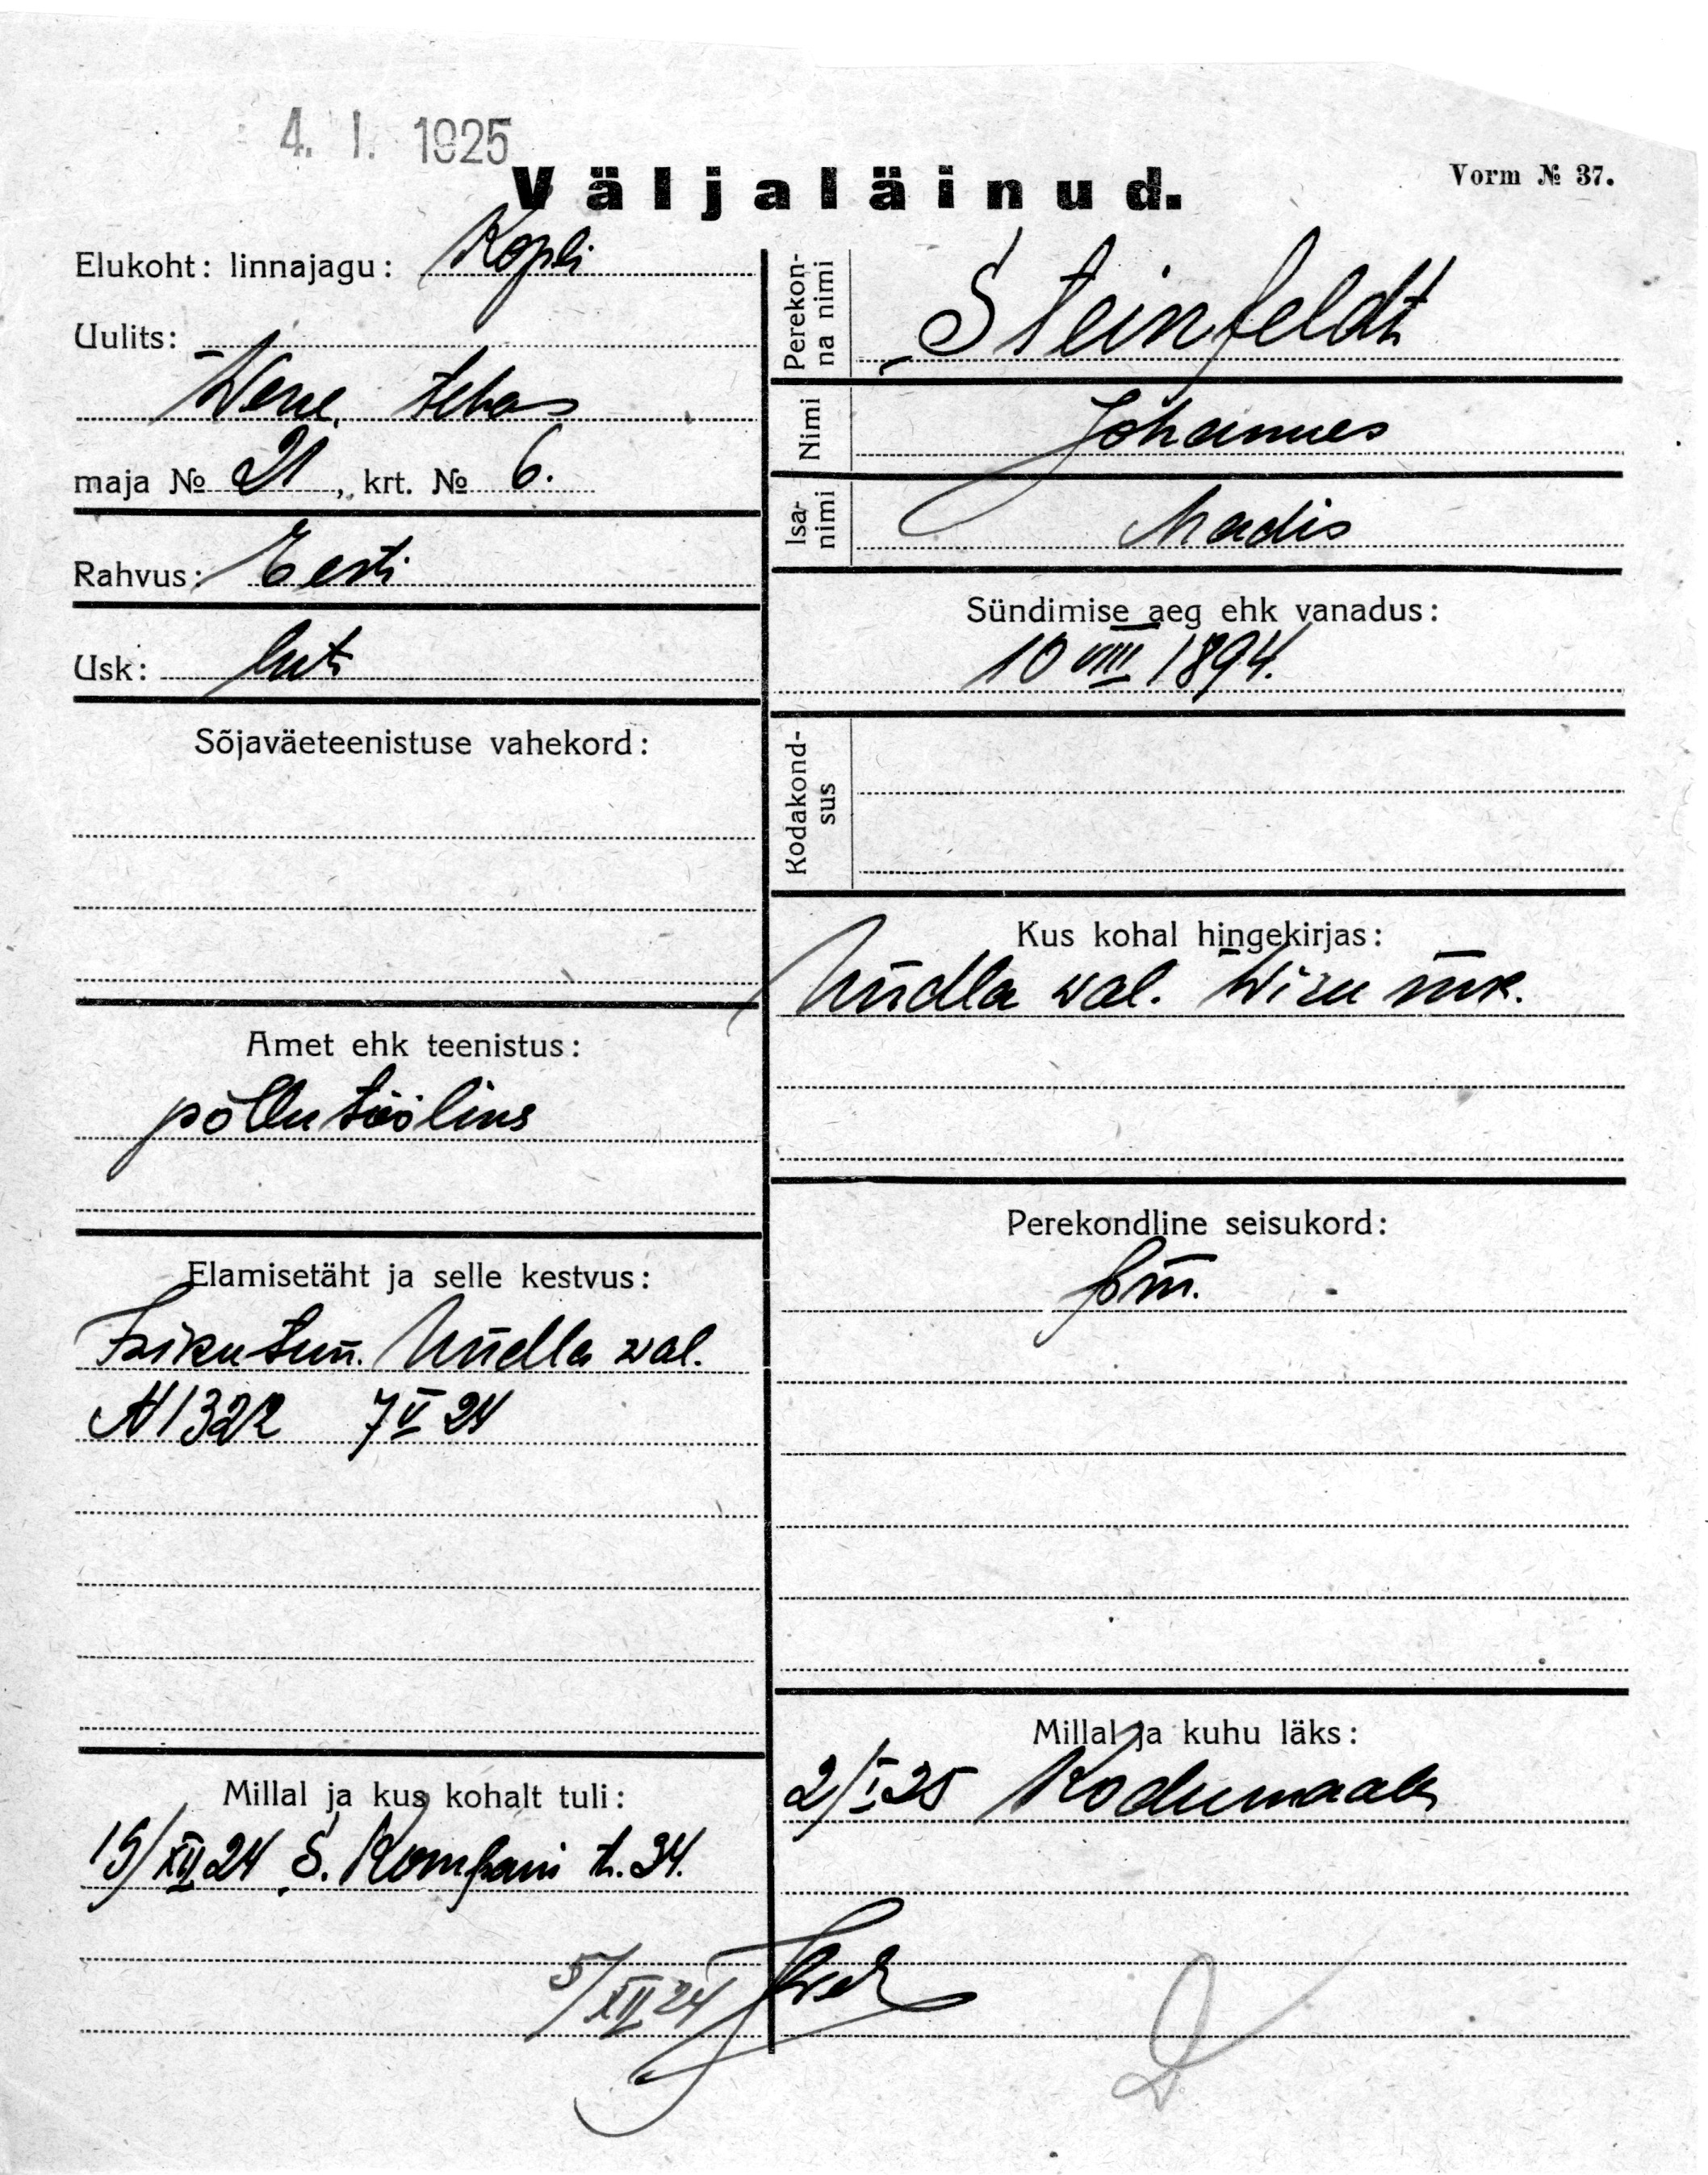 4. I. 1925
Väljaläinud.
Vorm № 37.
Elukoht: linnajagu: Kopli
Uulits:
Wene tehas
maja № 21, krt. № 6.
Rahvus: Eesti
Usk: lut
Sõjaväeteenistuse vahekord:
Amet ehk teenistus:
põllutööline
Elamisetäht ja selle kestvus:
Isikutun. Uudla wal.
N 1322 7 V 24
Millal ja kus kohalt tuli:
15/XII 24 S. Kompani t. 34.
5/XII 24
Perekonna nimi
Steinfeldt
Nimi
Johannes
Isanimi
Madis
Sündimise aeg ehk vanadus:
10 VIII 1894.
Kodakondsus
Kus kohal hingekirjas:
Uudla wal. Wiru mk.
Perekondline seisukord:
Millal ja kuhu läks:
2/I 25 Kodumaale